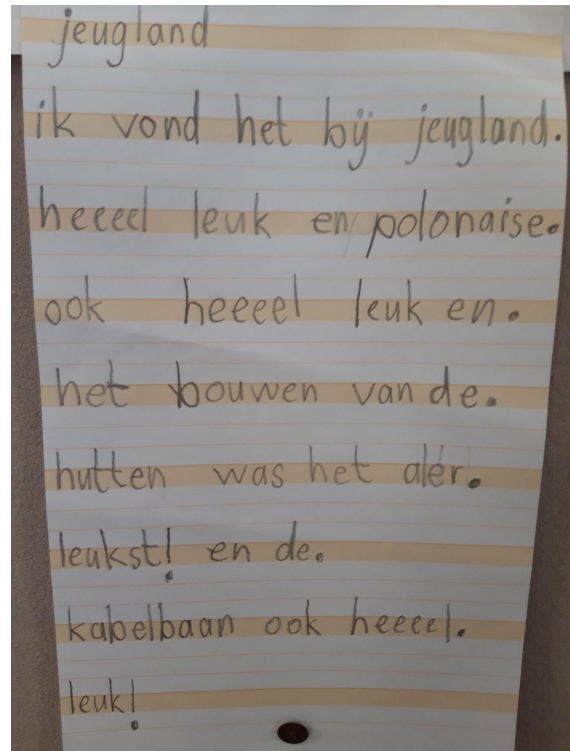 jeugland
ik vond het bij jeugland.
heeeel leuk en polonaise.
ook heeeel leuk en.
het bouwen van de.
hutten was het aler.
leukst! en de.
kabelbaan ook heeeel.
leuk!